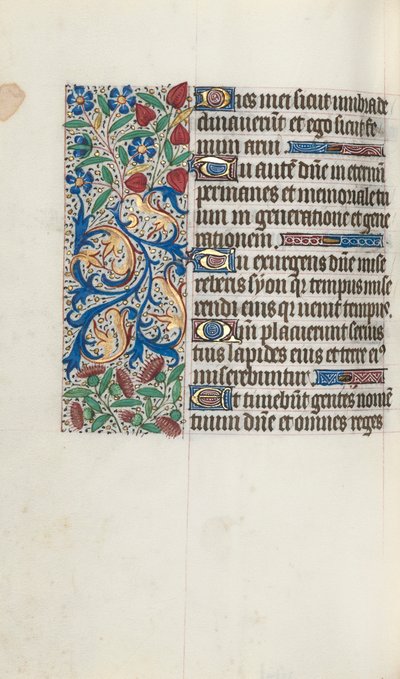 Dies mei sicut umbra de
clinaverunt et ego sicut fe
num arui
Tu autē dn̄e in eternū
permanes et memoriale tu
um in generatione et gene
rationem
Tu exurgens dn̄e mise
reberis syon qr tempus mise
rendi eius qr venit tempus.
Qm̄ placuerunt servis
tuis lapides eius et terre eiꝰ
miserebuntur
Et timebūt gentes nomē
tuum dn̄e et omnes reges